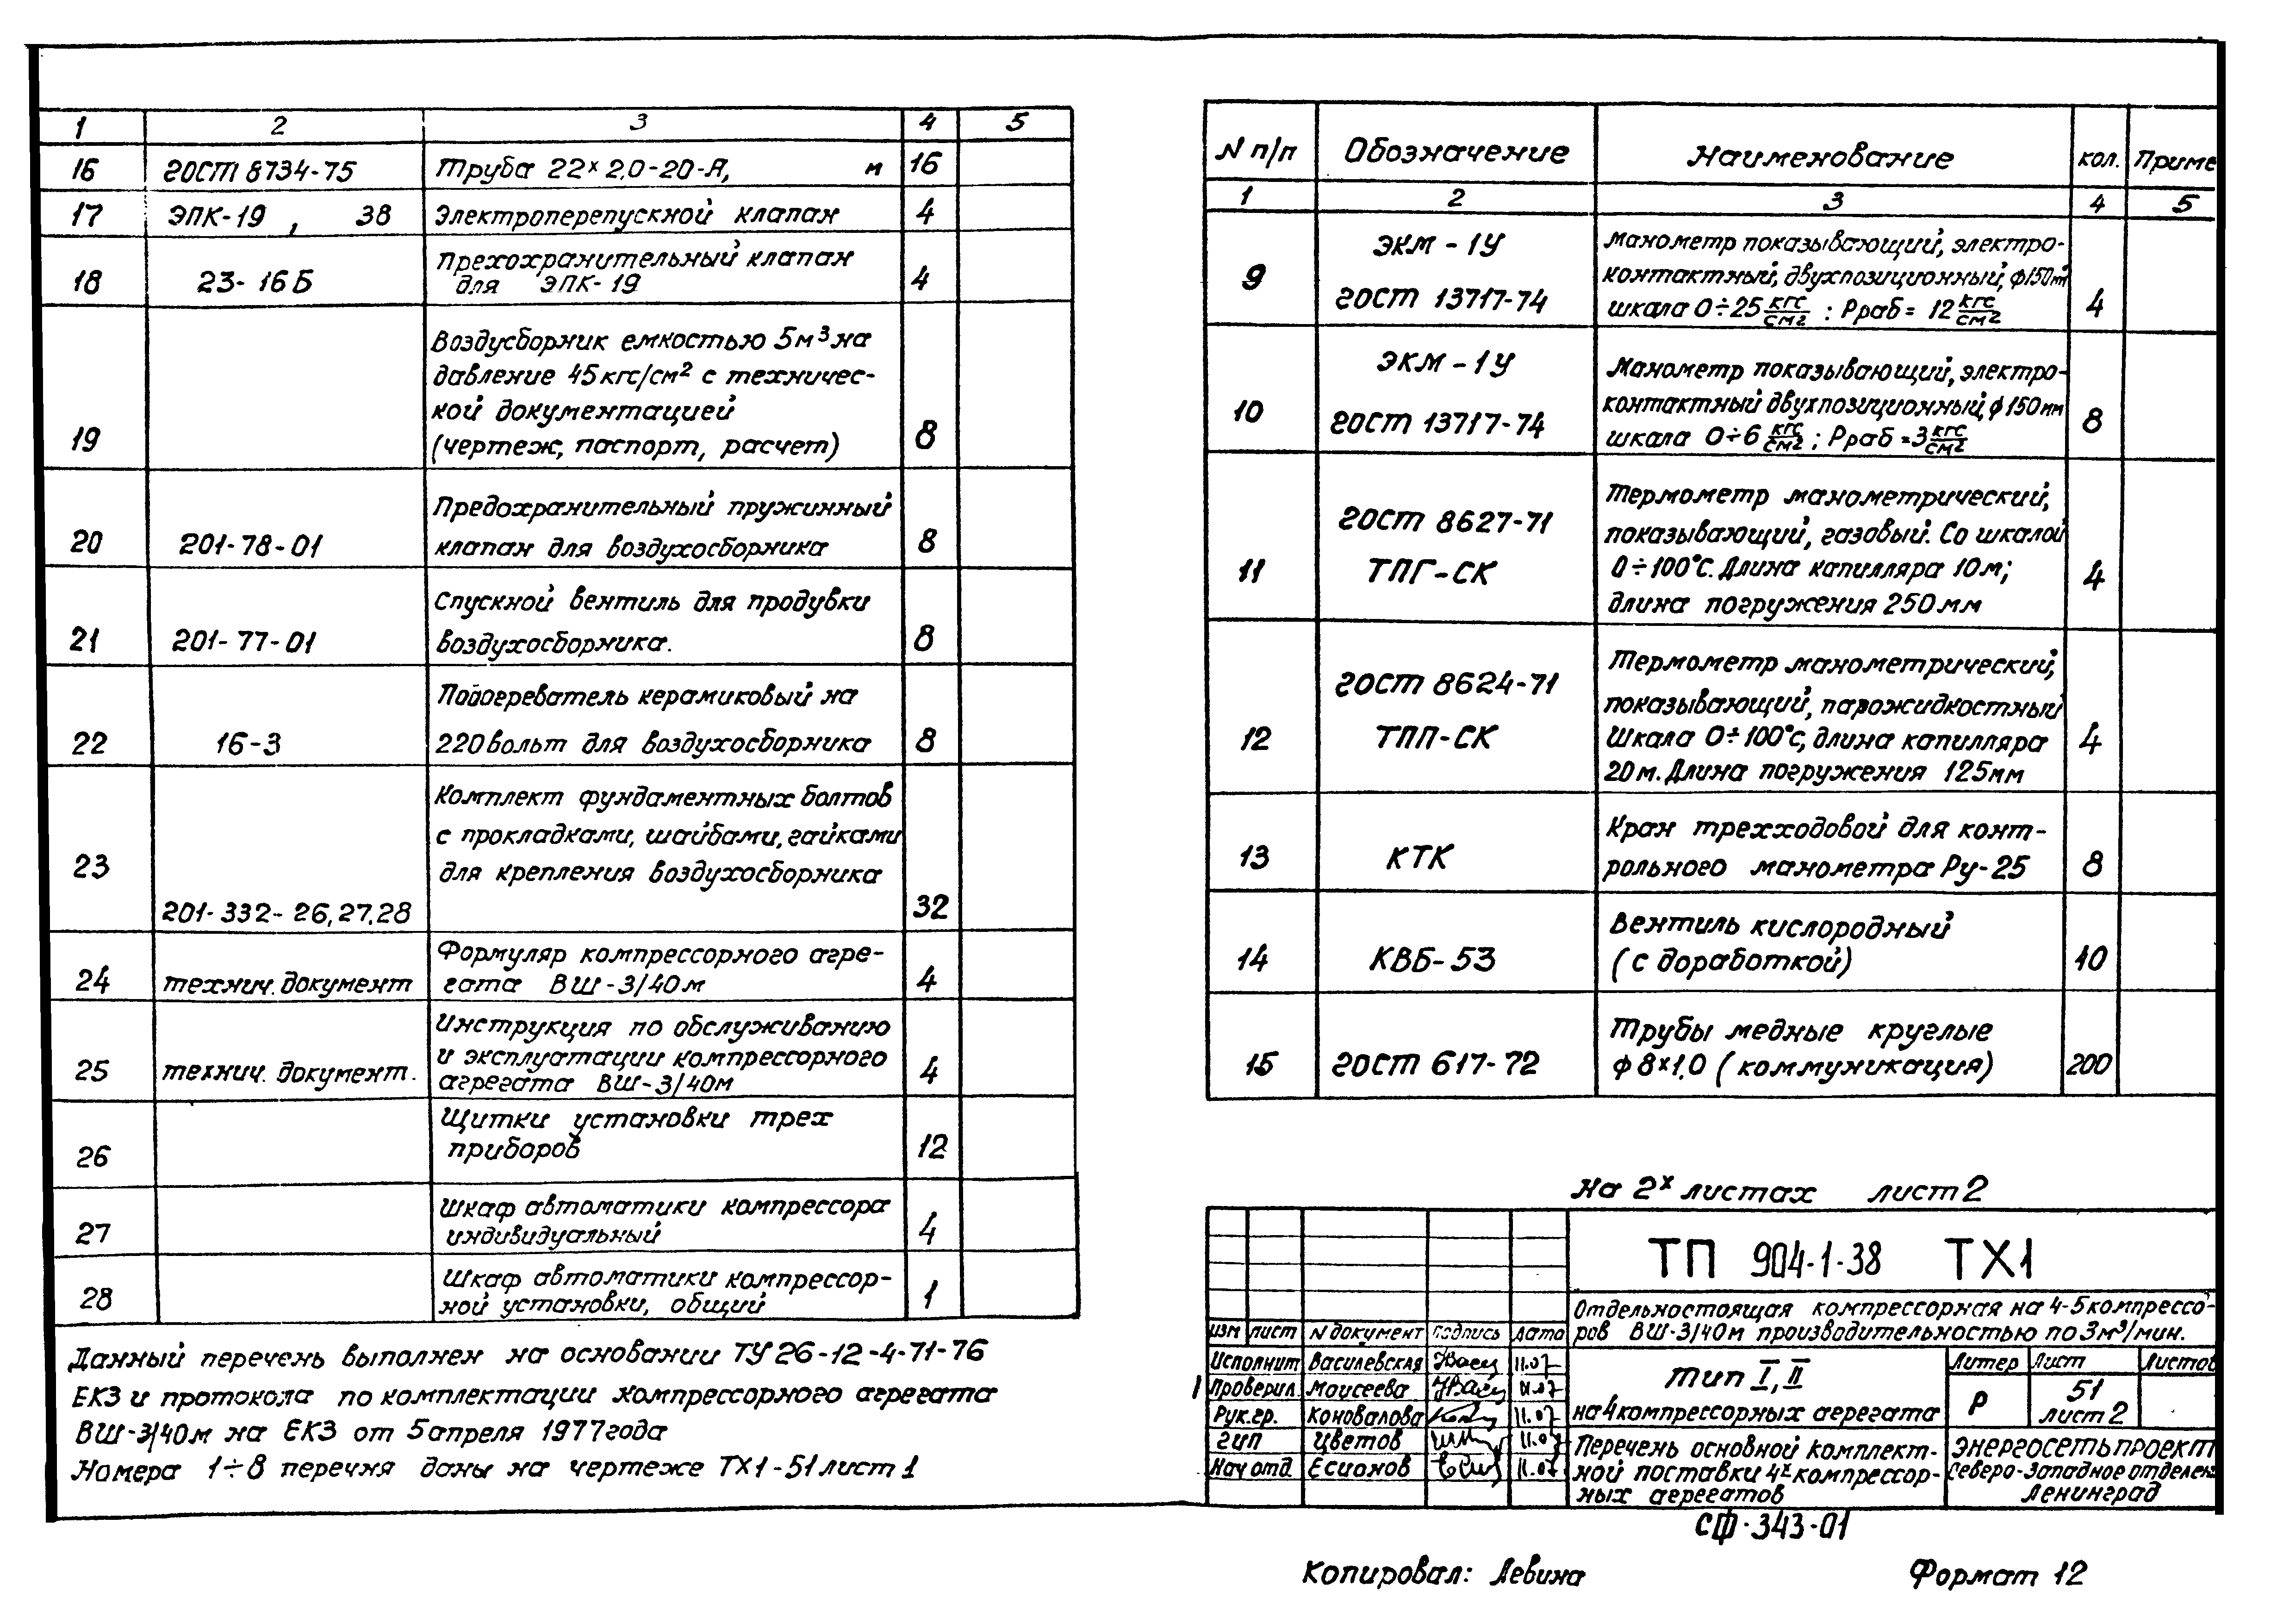 1 2 3 4 5
16 ГОСТ 8734-75 Труба 22х2,0-20-А, м 16
17 ЭПК-19, 38 Электроперепускной клапан 4
18 23-16Б Прехохранительный клапан
для ЭПК-19 4
19 Воздусборник емкостью 5м³ на
давление 45кгс/см² с техничес-
кой документацией
(чертеж, паспорт, расчет) 8
20 201-78-01 Предохранительный пружинный
клапан для воздухосборника 8
21 201-77-01 Спускной вентиль для продувки
воздухосборника. 8
22 16-3 Подогреватель керамиковый на
220вольт для воздухосборника 8
23 201-332-26,27,28 Комплект фундаментных болтов
с прокладками, шайбами, гайками
для крепления воздухосборника 32
24 технич. документ Формуляр компрессорного агре-
гата ВШ-3/40м 4
25 технич. документ. Инструкция по обслуживанию
и эксплуатации компрессорного
агрегата ВШ-3/40м 4
26 Щитки установки трех
приборов 12
27 Шкаф автоматики компрессора
индивидуальный 4
28 Шкаф автоматики компрессор-
ной установки, общий 1
Данный перечень выполнен на основании ТУ 26-12-4-71-76
ЕКЗ и протокола по комплектации компрессорного агрегата
ВШ-3/40м на ЕКЗ от 5апреля 1977года
Номера 1÷8 перечня даны на чертеже ТХ1-51лист 1
N п/п Обозначение Наименование кол. Приме
1 2 3 4 5
9 ЭКМ-1У
ГОСТ 13717-74 Манометр показывающий, электро-
контактный, двухпозиционный, ф150мм
шкала 0÷25 кгс/см² : Рраб= 12 кгс/см² 4
10 ЭКМ-1У
ГОСТ 13717-74 Манометр показывающий, электро-
контактный двухпозиционный, ф150мм
шкала 0÷6 кгс/см² ; Рраб=3 кгс/см² 8
11 ГОСТ 8627-71
ТПГ-СК Термометр манометрический,
показывающий, газовый. Со шкалой
0÷100°С. Длина капилляра 10м;
длина погружения 250мм 4
12 ГОСТ 8624-71
ТПП-СК Термометр манометрический,
показывающий, парожидкостный
Шкала 0÷100°С, длина капилляра
20м. Длина погружения 125мм 4
13 КТК Кран трехходовой для конт-
рольного манометра Ру-25 8
14 КВБ-53 Вентиль кислородный
(с доработкой) 10
15 ГОСТ 617-72 Трубы медные круглые
ф8х1,0 (коммуникация) 200
на 2х листах лист 2
ТП 904-1-38 ТХ1
Отдельностоящая компрессорная на 4-5компрессо-
ров ВШ-3/40м производительностью по 3м³/мин.
изм лист N документ подпись дата
Исполнит Василевская 11.07
Проверил Моусеева 11.07
Рук.гр. Коновалова 11.07
ГИП Цветов 11.07
Нач отд. Есионов 11.07
Тип I, II
на 4компрессорных агрегата
Литер Лист Листов
Р 51
лист 2
Перечень основной комплект-
ной поставки 4х компрессор-
ных агрегатов
Энергосетьпроект
Северо-Западное отделен
Ленинград
СФ-343-01
Копировал: Левина Формат 12